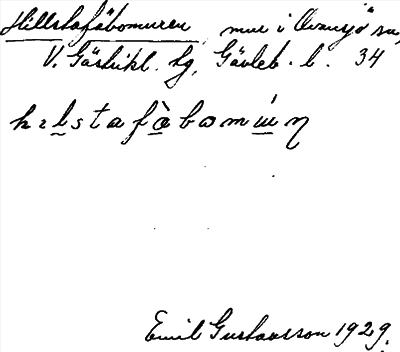 Hillstafäbomuren, mur i Ovansjö sn,
V. Gästrikl. hg, Gävleb. l. 34
hɪlstafäbomuɪn
Emil Gustavsson 1929.